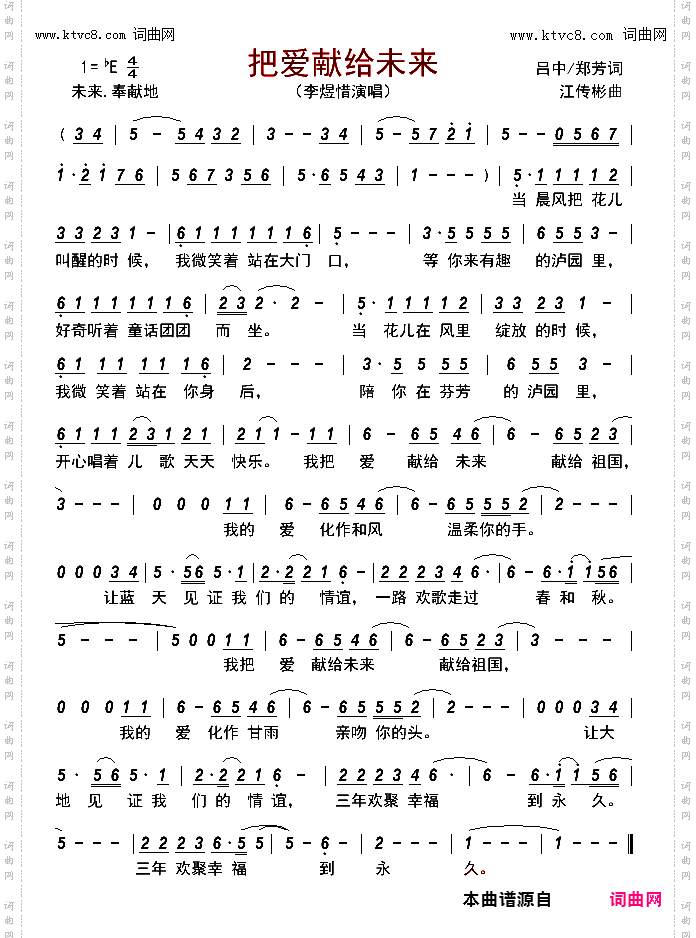 www.ktvc8.com 词曲网
www.ktvc8.com 词曲网
把爱献给未来
1=♭E 4/4
吕中/郑芳词
未来.奉献地
（李煜惜演唱）
江传彬曲
( 3 4 | 5 - 5 4 3 2 | 3 - - 3 4 | 5 - 5 7 2 1 | 5 - - 0 5 6 7
1·2 1 7 6 | 5 6 7 3 5 6 | 5·6 5 4 3 | 1 - - - ) | 5·1 1 1 1 2
当 晨风把 花儿
3 3 2 3 1 - | 6 1 1 1 1 1 1 6 | 5 - - - | 3·5 5 5 5 | 6 5 5 3 -
叫醒的时 候， 我微笑着 站在大门 口， 等 你来有趣 的泸园 里，
6 1 1 1 1 1 1 6 | 2 3 2· 2 - | 5·1 1 1 1 2 | 3 3 2 3 1 -
好奇听着 童话团团 而 坐。 当 花儿在 风里 绽放 的时 候，
6 1 1 1 1 1 1 6 | 2 - - - | 3·5 5 5 5 | 6 5 5 3 -
我微 笑着 站在 你身 后， 陪 你 在 芬芳 的 泸园 里，
6 1 1 1 2 3 1 2 1 | 2 1 1 - 1 1 | 6 - 6 5 4 6 | 6 - 6 5 2 3
开心唱着 儿 歌 天天 快乐。 我把 爱 献给 未来 献给 祖国，
3 - - - | 0 0 0 1 1 | 6 - 6 5 4 6 | 6 - 6 5 5 5 2 | 2 - - -
我的 爱 化作和风 温柔你的手。
0 0 0 3 4 | 5·5 6 5·1 | 2·2 2 1 6 - | 2 2 2 3 4 6 | 6 - 6·1 1 5 6
让蓝 天 见 证 我 们 的 情谊， 一路 欢歌走过 春 和 秋。
5 - - - | 5 0 0 1 1 | 6 - 6 5 4 6 | 6 - 6 5 2 3 | 3 - - -
我把 爱 献给未来 献给祖国，
0 0 0 1 1 | 6 - 6 5 4 6 | 6 - 6 5 5 5 2 | 2 - - - | 0 0 0 3 4
我的 爱 化作 甘雨 亲吻 你的头。 让大
5·5 6 5·1 | 2·2 2 1 6 - | 2 2 2 3 4 6 | 6 - 6·1 1 5 6
地 见 证 我 们 的 情 谊， 三年欢聚 幸福 到 永 久。
5 - - - | 2 2 2 3 6·5 5 | 5 - 6 - | 2 - - 2 | 1 - - - | 1 - - - ‖
三年 欢聚幸 福 到 永 久。
本曲谱源自 词曲网